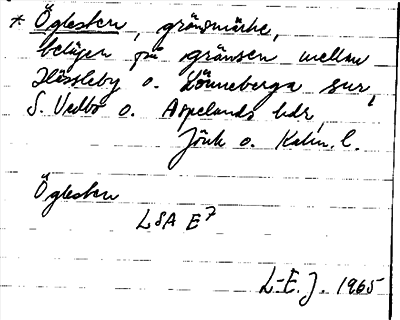 * Öglesten, gränsmärke,
belägen på gränsen mellan
Hässleby o. Lönneberga snr,
S. Vedbo o. Aspelands hdr,
Jönk o. Kalm. l.
Öglesten
LSA E7
L-E. J. 1965